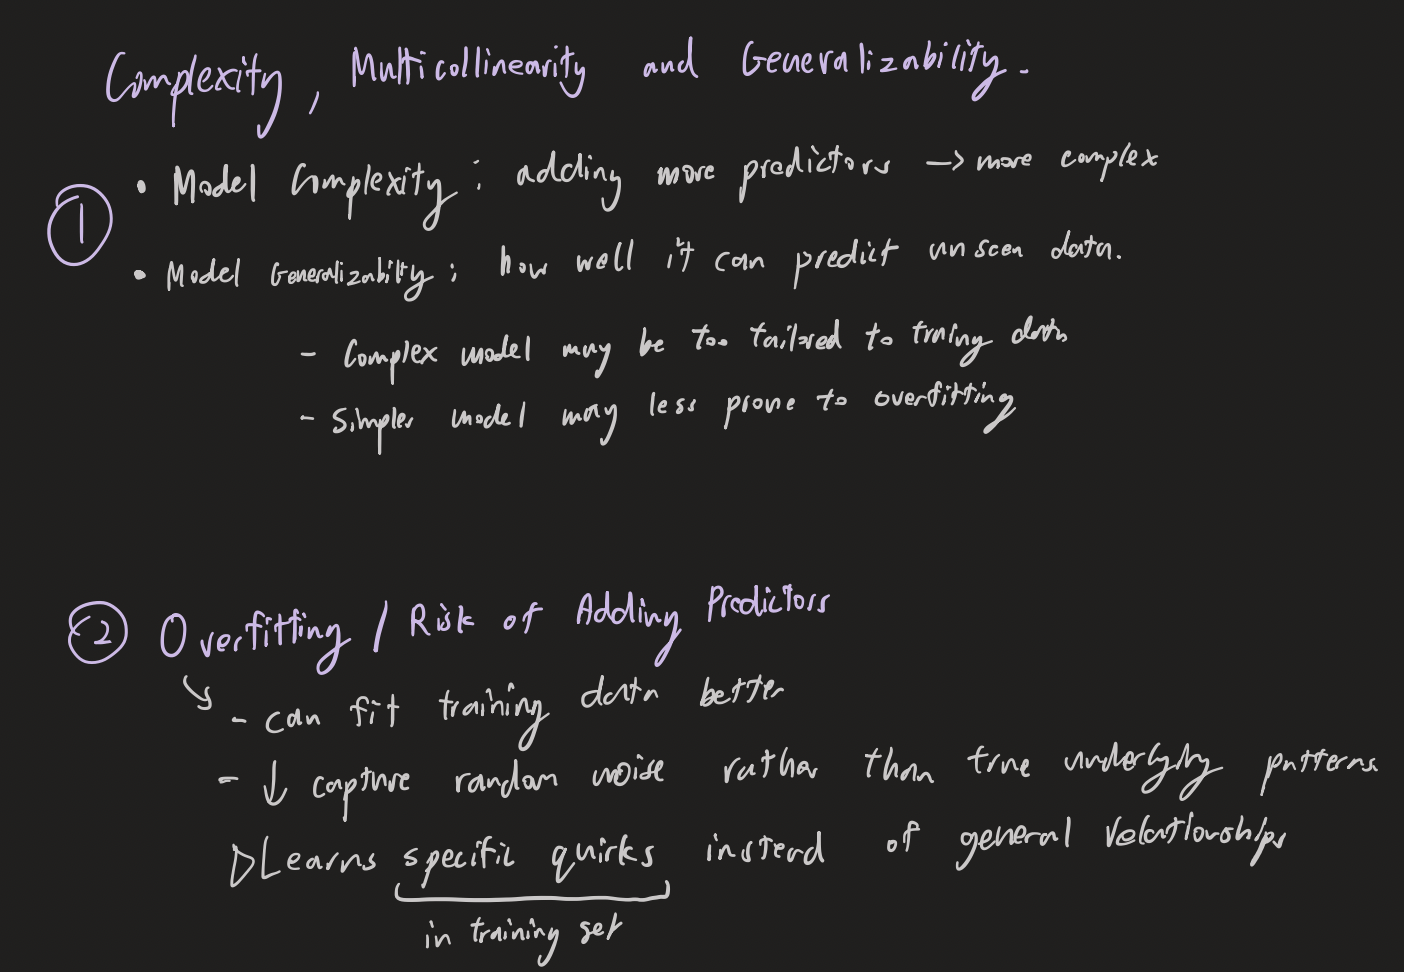 Complexity, Multicollinearity and Generalizability.
① • Model Complexity: adding more predictors → more complex
• Model Generalizability: how well it can predict unseen data.
- Complex model may be too tailored to traing data
- Simpler model may less prone to overfitting
② Overfitting / Risk of Adding Predictors
↘ - can fit training data better
- ↓ capture random noise rather than true underlying patterns
▷ Learns specific quirks instead of general relationships
in training set